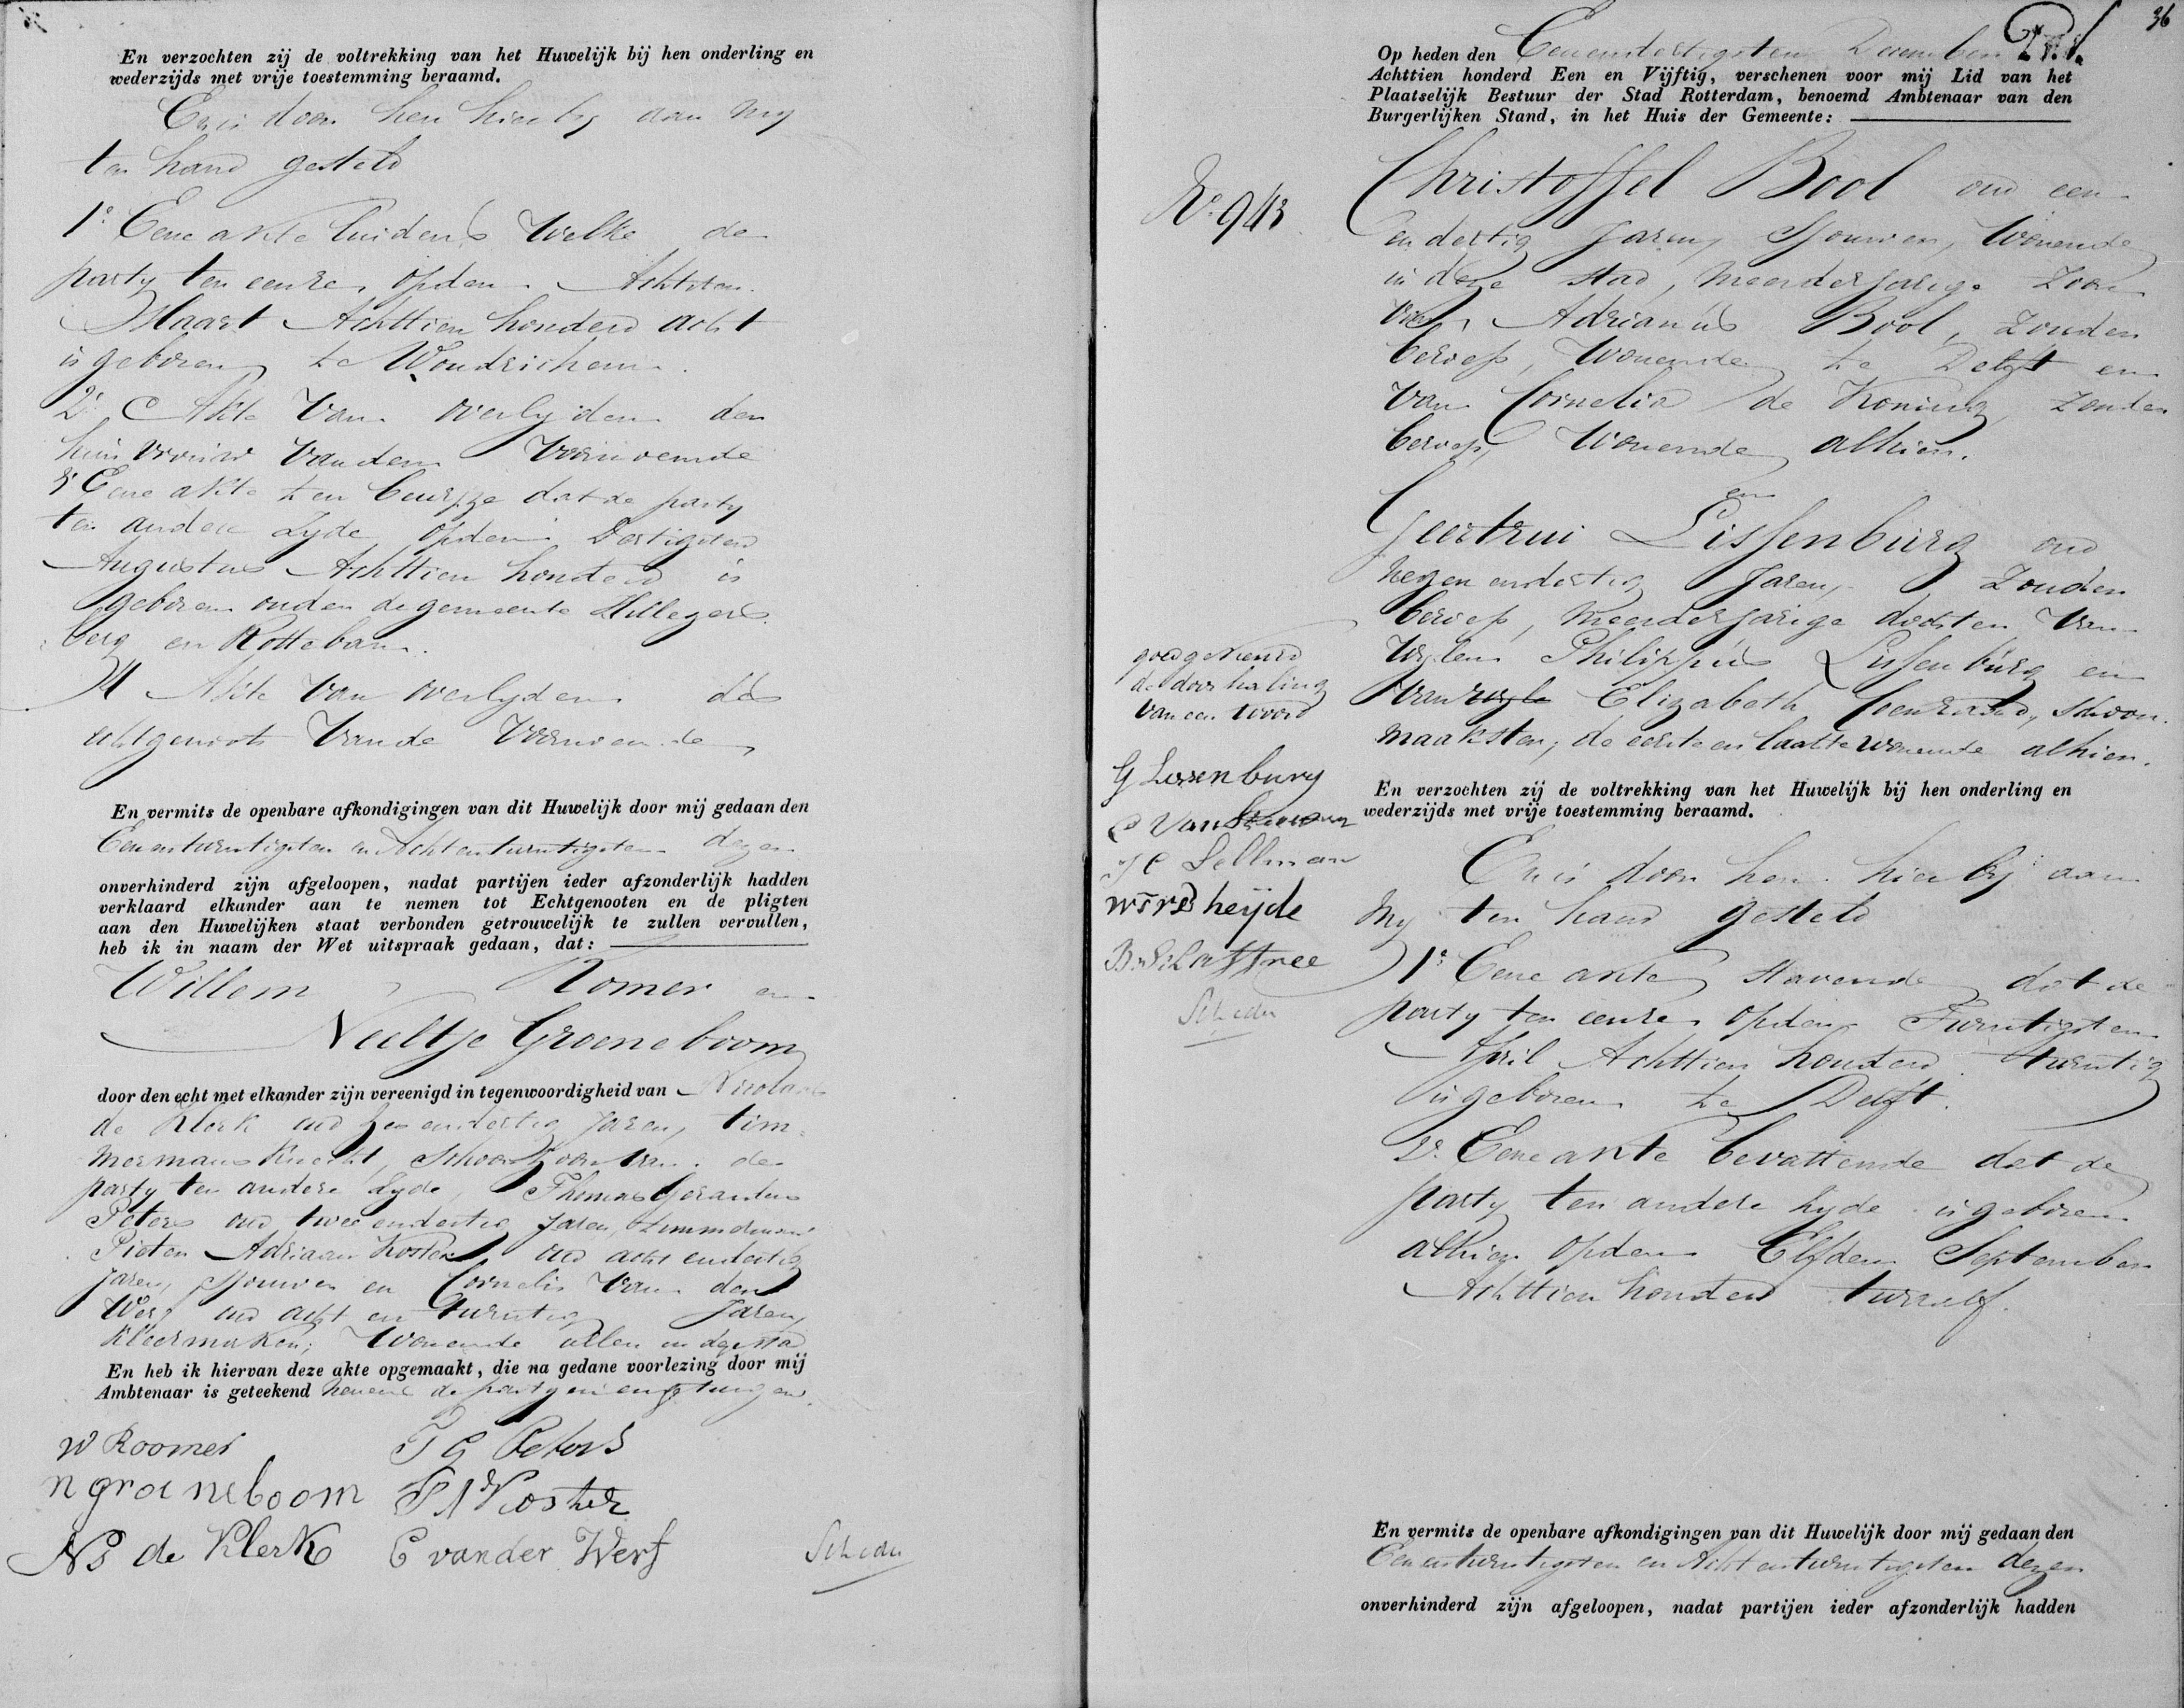 En verzochten zij de voltrekking van het Huwelijk bij hen onderling en
wederzijds met vrije toestemming beraamd.
En is door hen hier by aan my
ter hand gesteld
1° Eene akte luidens welke de
party ter eenre, op den Achtsten
Maart Achttien honderd acht
is geboren te Woudrichem.
2° Akte van overlyden der
huisvrouw van den voornoemde
3° Eene akte ten bewyze dat de party
ter andere Zyde op den Dertigsten
Augustus Achttien honderd is
geboren onder de gemeente Hillegers
berg en Rotteban.
4 Akte van overlyden des
echtgenoots van de voornoemde
En vermits de openbare afkondigingen van dit Huwelijk door mij gedaan den
Eenentwintigsten en Achtentwintigsten dezer
onverhinderd zijn afgeloopen, nadat partijen ieder afzonderlijk hadden
verklaard elkander aan te nemen tot Echtgenooten en de pligten
aan den Huwelijken staat verbonden getrouwelijk te zullen vervullen,
heb ik in naam der Wet uitspraak gedaan, dat:
Willem Romer en
Neeltje Groeneboom
door den echt met elkander zijn vereenigd in tegenwoordigheid van Nicolaas
de Klerk oud endertig jaren, tim=
mermans knecht, Schoonzoon van de
party ter andere Zyde, Thomas Gerardus
Peters oud twee endertig jaren, timmerman
Pieter Adriaan Koster oud acht endertig
jaren, sjouwer en Cornelis van der
Werf oud acht en twintig jaren,
kleermaker; Wonende allen in deze stad
En heb ik hiervan deze akte opgemaakt, die na gedane voorlezing door mij
Ambtenaar is geteekend nevens de partyen en getuigen.
W Roomer T G Peters
n groeneboom P A Koster
Ns de Klerk C van der Werf
36
Op heden den Eenendertigsten December
Achttien honderd Een en Vijftig, verschenen voor mij Lid van het
Plaatselijk Bestuur der Stad Rotterdam, benoemd Ambtenaar van den
Burgerlijken Stand, in het Huis der Gemeente:
N° 943
Christoffel Bool oud een
en dertig jaren, Sjouwer, Wonende
in deze stad, meerderjarige zoon
van Adrianus Bool, zonder
beroep, wonende te Delft en
van Cornelia de Koning, zonder
beroep, wonende alhier.
en
Geertrui Lissenburg oud
negen endertig jaren, zonder
beroep, meerderjarige dochter van
wylen Philippus Lissenburg en
van wyle Elizabeth Coenraad, schoon
maakster, de eerste en laatste wonende alhier.
goedgekeurd
de doorhaling
van een woord
G Lissenburg
C van
J C Sellman
W T vd heijde
B. Schaftree
En verzochten zij de voltrekking van het Huwelijk bij hen onderling en
wederzijds met vrije toestemming beraamd.
En is door hen hier by aan
my ter hand gesteld
1° Eene akte stavende dat de
party ter eenre op den Twintigsten
April Achttien honderd twintig
is geboren te Delft.
2° Eene akte bevattende dat de
party ter andere zyde is geboren
alhier op den Elfden September
Achttien honderd twaalf.
En vermits de openbare afkondigingen van dit Huwelijk door mij gedaan den
Eenentwintigsten en Achtentwintigsten dezer
onverhinderd zijn afgeloopen, nadat partijen ieder afzonderlijk hadden